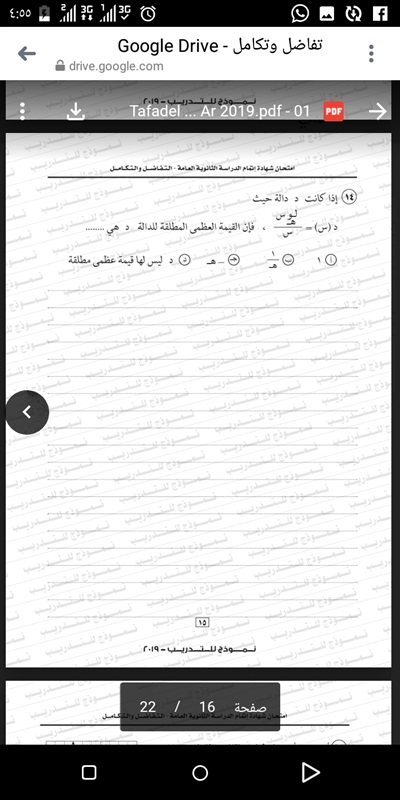 ٤:٥٥
تفاضل وتكامل - Google Drive
drive.google.com
نـمــــوذج للـتـــدريـــب – ٢٠١٩
Tafadel ... Ar 2019.pdf - 01
PDF
امتحان شهادة إتمام الدراسة الثانوية العامة - التفاضل والتكامل
١٤ إذا كانت د دالة حيث
د (س) = لو هـ س / س ، فإن القيمة العظمى المطلقة للدالة د هي ........
أ ١ ب ١/هـ ج – هـ د د ليس لها قيمة عظمى مطلقة
١٥
نـمــــوذج للـتـــدريـــب – ٢٠١٩
صفحة 16 / 22
امتحان شهادة إتمام الدراسة الثانوية العامة - التفاضل والتكامل